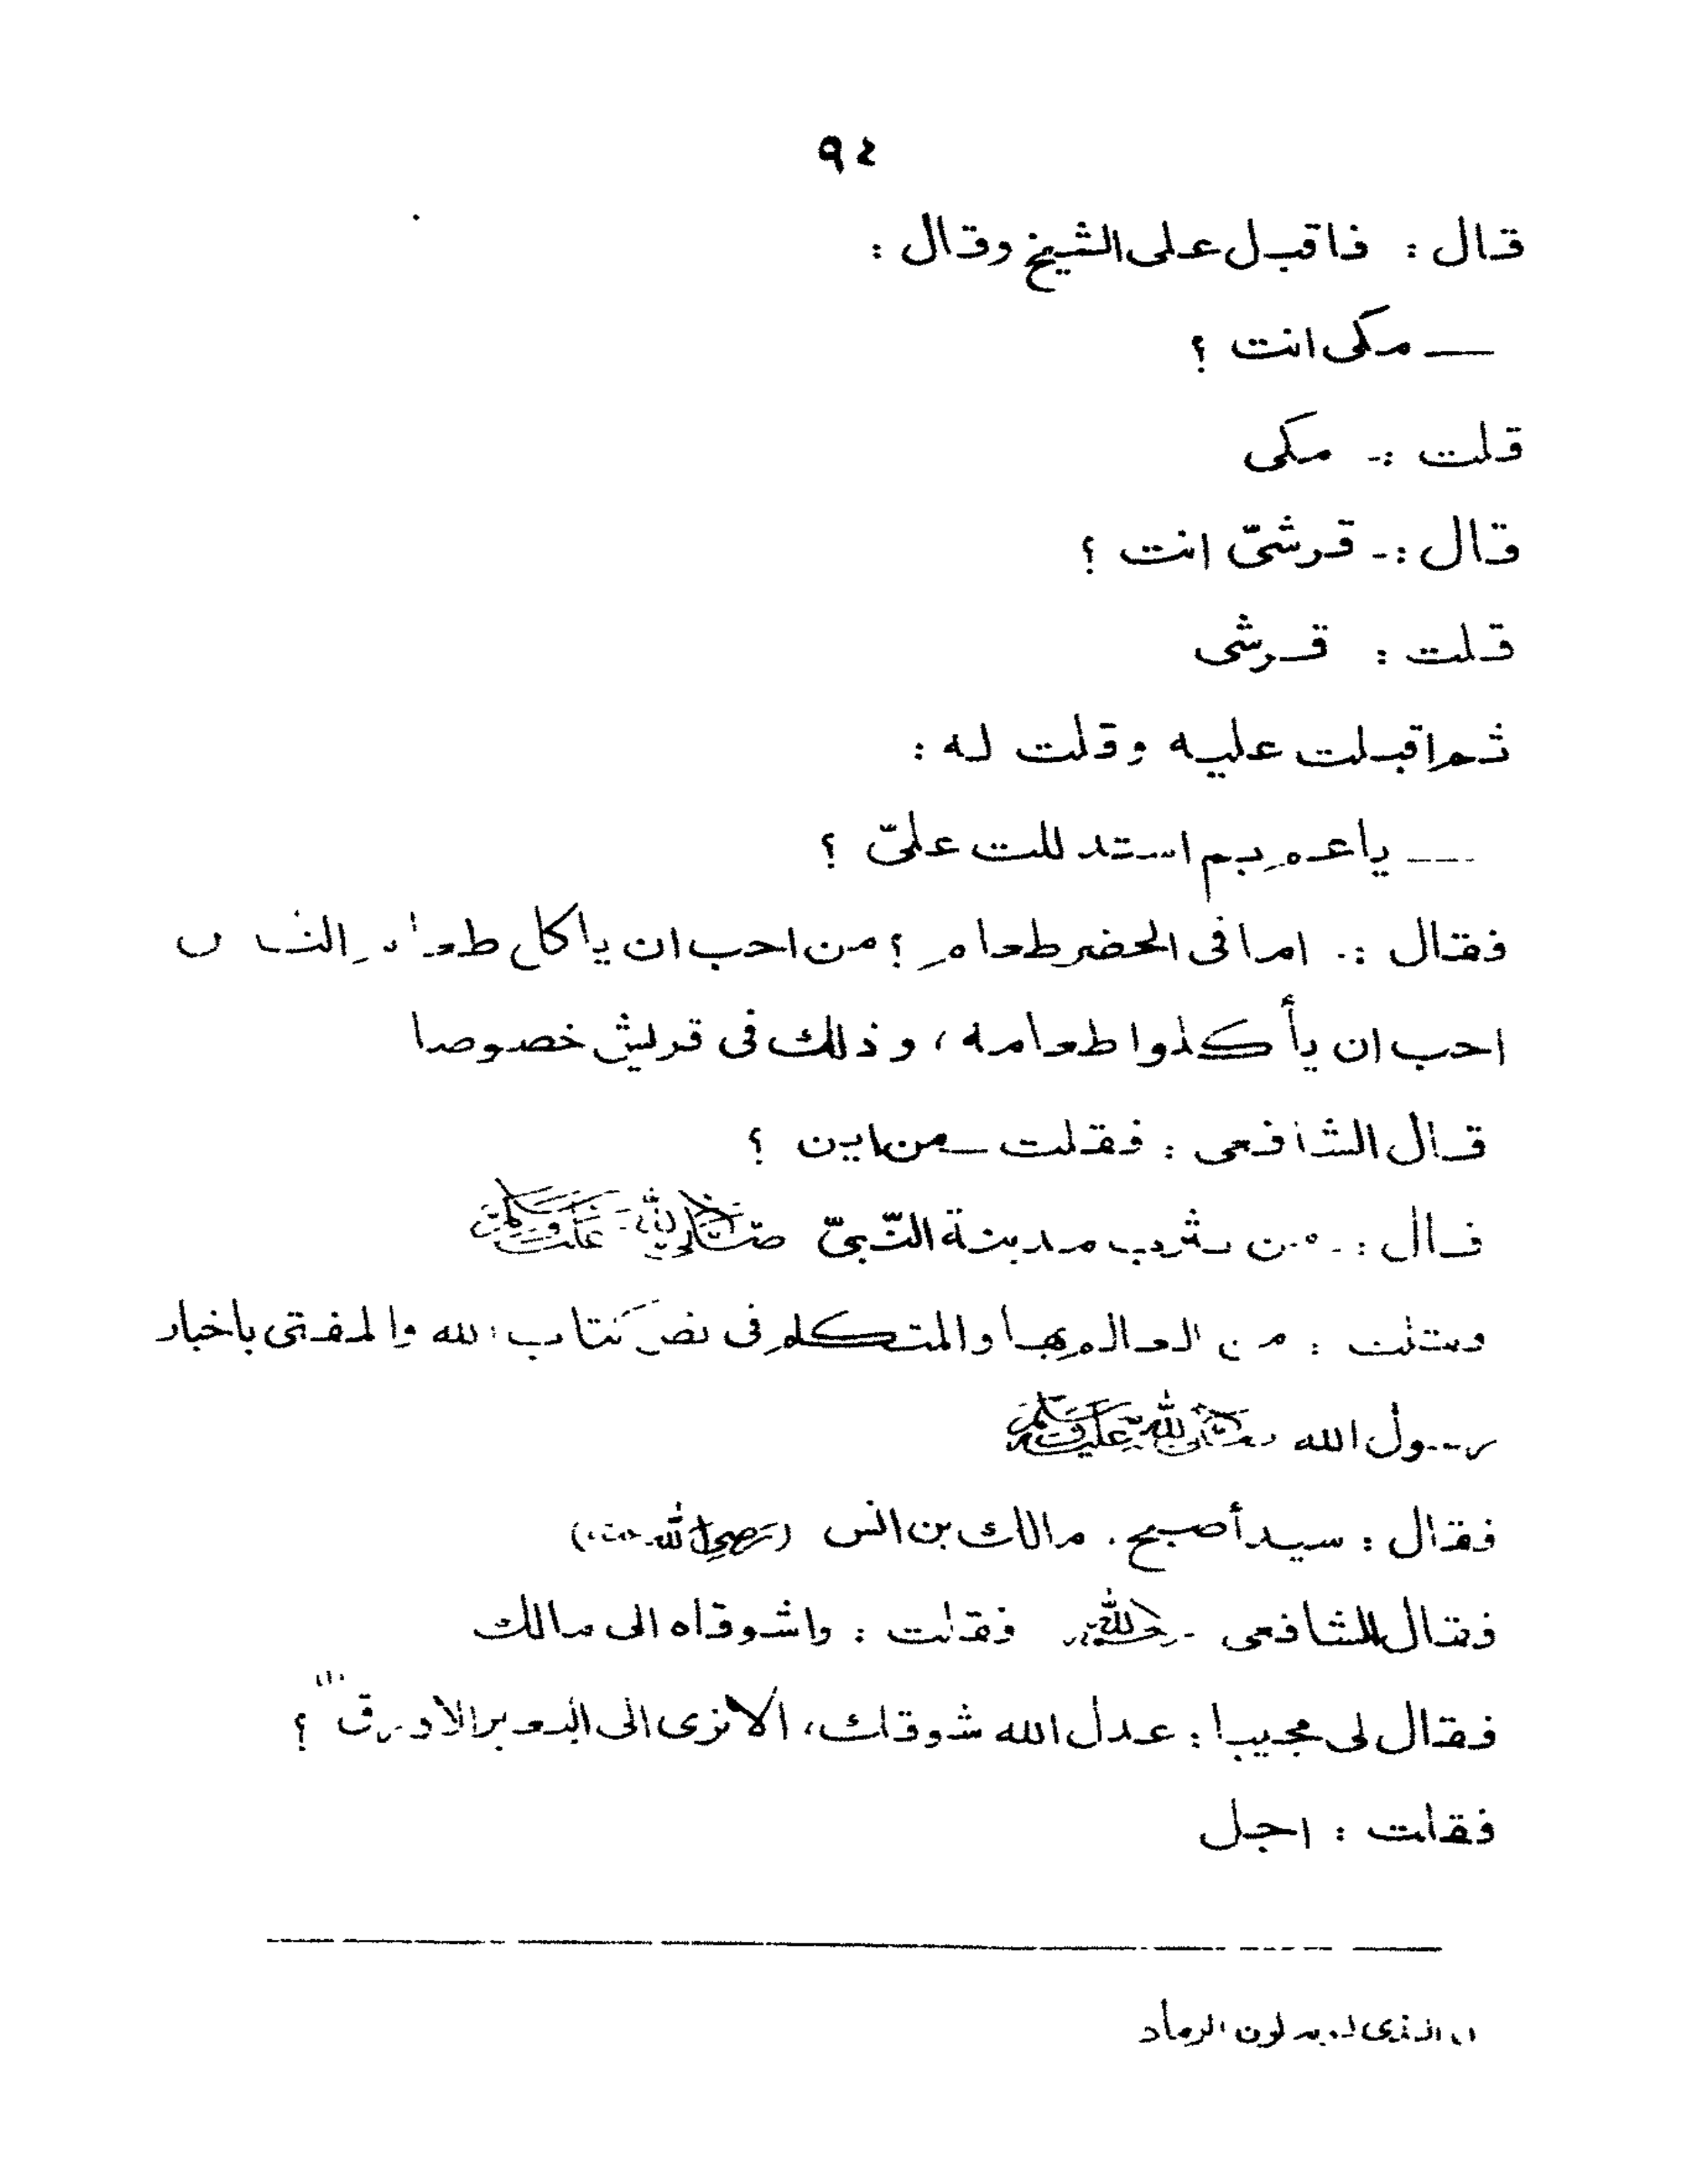 ٩٤
قال : فاقبل على الشيخ وقال :
— مكى انت ؟
قلت :- مكى
قال :- قرشىّ انت ؟
قلت : قرشى
ثم اقبلت عليه وقلت له :
— ياعم بم استدللت علىّ ؟
فقال :- اما فى الحضر طعام ؟ من احب ان ياكل طعام الناس
احب ان يأكلوا طعامه ، وذلك فى قريش خصوصا
قال الشافعى : فقلت – من اين ؟
قال :- من يثرب مدينة النّبىّ صلى الله عليه وسلم
وقلت : من العالم بها والمتكلم فى نص كتاب الله والمفتى باخبار
رسول الله صلى الله عليه وسلم
فقال : سيد أصبح . مالك بن انس (رضى الله عنه)
فقال الشافعى - رحمه الله فقلت : واشوقاه الى مالك
فقال لى مجيبا : عدل الله شوقك، الا ترى الى البعير الاورق (١) ؟
فقلت : اجل
١) الذى لونه لون الرماد